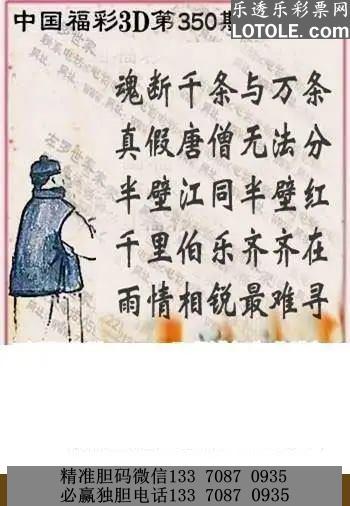 中国福彩3D第350期
乐透乐彩票网
LOTOLE.COM
魂断千条与万条
真假唐僧无法分
半壁江同半壁红
千里伯乐齐齐在
雨情相锐最难寻
精准胆码微信133 7087 0935
必赢独胆电话133 7087 0935